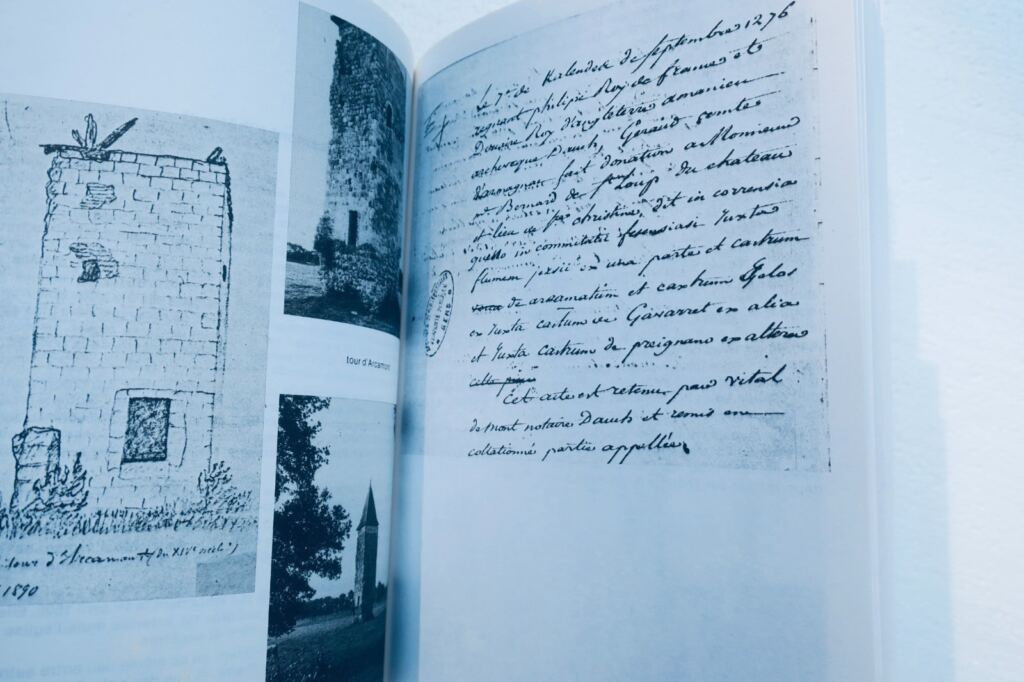 tour d'Arcamont (du XIVe siècle)
1890
tour d'Arcamont
Le 7e de Kalendes de septembre 1276
regnant philipe Roy de france et
Roy d'angleterre amanieu
archeveque Dauch, Géraud comte
d'armagnac fait donation a Monsieur
Bernard de Loup du chateau
et lieu de christine, dit in corrensia
quello in commitatu fesensiasi Juxta
flumen ex una parte et castrum
de arcamatum et castrum
ex Juxta castrum de Gavarret ex alia
et Juxta castrum de preignano ex altera
Cet acte est retenu par vital
de mont notaire Dauch et remis en
collationné partie appellée.
GERS